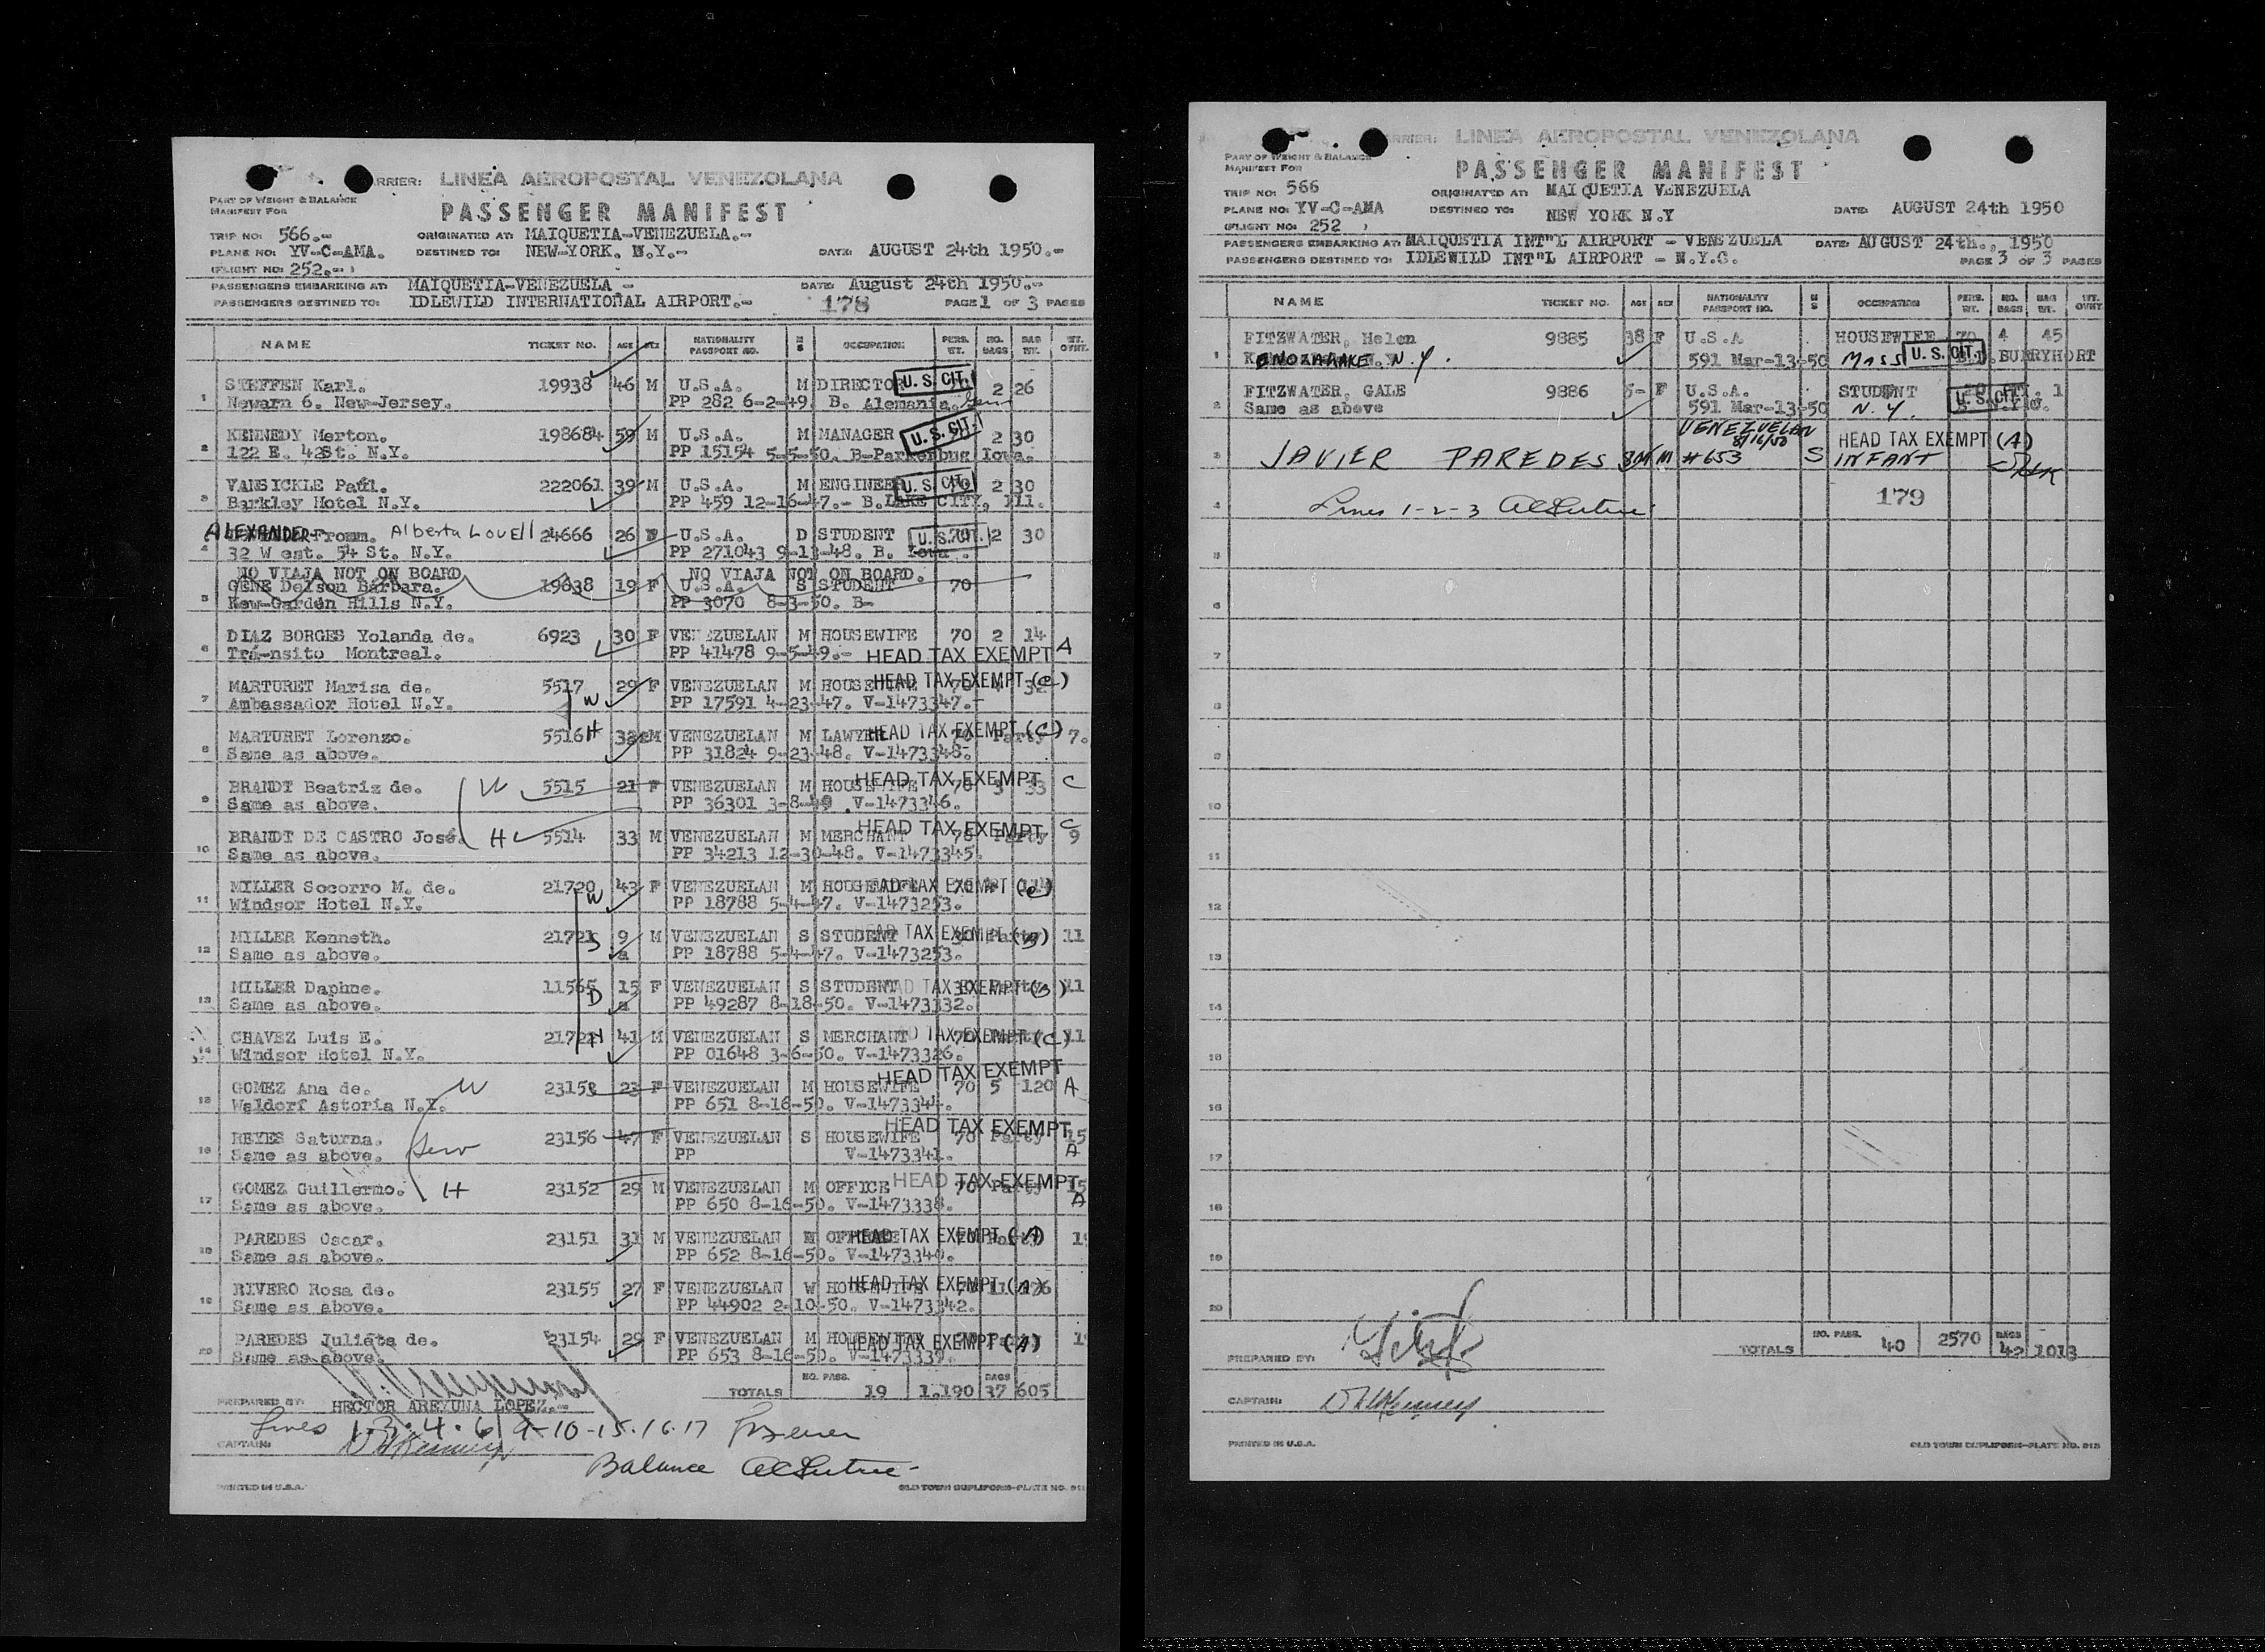 CARRIER: LINEA AEROPOSTAL VENEZOLANA
PART OF WEIGHT & BALANCE
MANIFEST FOR
PASSENGER MANIFEST
TRIP NO: 566.- ORIGINATED AT: MAIQUETIA-VENEZUELA.-
PLANE NO: YV-C-AMA. DESTINED TO: NEW-YORK. N.Y.- DATE: AUGUST 24th 1950.-
(FLIGHT NO: 252.- )
PASSENGERS EMBARKING AT: MAIQUETIA-VENEZUELA - DATE: August 24th 1950.-
PASSENGERS DESTINED TO: IDLEWILD INTERNATIONAL AIRPORT.- 178 PAGE 1 OF 3 PAGES
NAME TICKET NO. AGE SEX NATIONALITY PASSPORT NO. M S OCCUPATION PERS. WT. NO. BAGS BAG WT. WT. OVHT.
1 STEFFEN Karl. 19938 46 M U.S.A. M DIRECTOR U.S. CIT. 2 26
Newark 6. New-Jersey. PP 282 6-2-49 B. Alemania.
2 KENNEDY Merton. 198684 59 M U.S.A. M MANAGER U.S. CIT. 2 30
122 E. 42St. N.Y. PP 15154 5-5-50. B-Parkersbug Iowa.
3 VANSICKLE Paul. 222061 39 M U.S.A. M ENGINEER U.S. CIT. 2 30
Barkley Hotel N.Y. PP 459 12-16-47.- B.LAKE CITY, Ill.
4 ALEXANDER Fromm. Alberta Lovell 24666 26 F U.S.A. D STUDENT U.S. CIT. 70 2 30
32 W est. 54 St. N.Y. PP 271043 9-13-48. B. Iowa .
NO VIAJA NOT ON BOARD NO VIAJA NOT ON BOARD.
5 GENE Delson Barbara. 19838 19 F U.S.A. S STUDENT 70
Kew-Garden Hills N.Y. PP 3070 8-3-50. B-
6 DIAZ BORGES Yolanda de. 6923 30 F VENEZUELAN M HOUSEWIFE 70 2 14
Trá-nsito Montreal. PP 41478 9-5-49.- HEAD TAX EXEMPT A
7 MARTURET Marisa de. 5517 29 F VENEZUELAN M HOUSEWIFE HEAD TAX EXEMPT (C)
Ambassador Hotel N.Y. W PP 17591 4-23-47. V-1473347.-
8 MARTURET Lorenzo. 5516 H 38 M VENEZUELAN M LAWYER HEAD TAX EXEMPT (C) 70 Party 7.
Same as above. PP 31824 9-23-48. V-1473348.-
9 BRANDT Beatriz de. W 5515 21 F VENEZUELAN M HOUSEWIFE HEAD TAX EXEMPT C 70 3 33
Same as above. PP 36301 3-8-49 .V-1473346.
10 BRANDT DE CASTRO José. H 5514 33 M VENEZUELAN M MERCHANT HEAD TAX EXEMPT C 70 Party 9
Same as above. PP 34213 12-30-48. V-1473345.
11 MILLER Socorro M. de. 21720 43 F VENEZUELAN M HOUSEWIFE HEAD TAX EXEMPT (C)
Windsor Hotel N.Y. W PP 18788 5-4-47. V-1473253.
12 MILLER Kenneth. 21721 9 M VENEZUELAN S STUDENT HEAD TAX EXEMPT (B) Party 11
Same as above. S a PP 18788 5-4-47. V-1473253.
13 MILLER Daphne. 11565 15 F VENEZUELAN S STUDENT HEAD TAX EXEMPT (B) 11
Same as above. D a PP 49287 8-18-50. V-1473332.
14 CHAVEZ Luis E. 21722 H 41 M VENEZUELAN S MERCHANT HEAD TAX EXEMPT (C) 70 11
Windsor Hotel N.Y. PP 01648 3-6-50. V-1473326.
15 GOMEZ Ana de. W 23153 23 F VENEZUELAN M HOUSEWIFE HEAD TAX EXEMPT 70 5 120 A
Waldorf Astoria N.Y. PP 651 8-16-50. V-1473344.
16 REYES Saturna. Serv 23156 47 F VENEZUELAN S HOUSEWIFE HEAD TAX EXEMPT 70 Party 15
Same as above. PP V-1473341. A
17 GOMEZ Guillermo. H 23152 29 M VENEZUELAN M OFFICE HEAD TAX EXEMPT 70 Party 15
Same as above. PP 650 8-16-50. V-1473338. A
18 PAREDES Oscar. 23151 31 M VENEZUELAN M HEAD TAX EXEMPT (A)
Same as above. PP 652 8-16-50. V-1473340.
19 RIVERO Rosa de. 23155 27 F VENEZUELAN W HOUSEWIFE HEAD TAX EXEMPT (A)
Same as above. PP 44902 2-10-50. V-1473342.
20 PAREDES Juliéta de. 23154 29 F VENEZUELAN M HOUSEWIFE HEAD TAX EXEMPT (A)
Same as above. PP 653 8-16-50. V-1473339.
TOTALS NO. PASS. 19 1.190 BAGS 37 605
PREPARED BY: HECTOR AREYUNA LOPEZ.-
Lines 1.2.4.6 9-10-15.16.17
CAPTAIN:
Balance
PRINTED IN U.S.A. OLD TOWN DUPLIFORM-PLATE NO.
CARRIER: LINEA AEROPOSTAL VENEZOLANA
PART OF WEIGHT & BALANCE
MANIFEST FOR
PASSENGER MANIFEST
TRIP NO: 566 ORIGINATED AT: MAIQUETIA VENEZUELA
PLANE NO: YV-C-AMA DESTINED TO: NEW YORK N.Y DATE: AUGUST 24th 1950
(FLIGHT NO: 252 )
PASSENGERS EMBARKING AT: MAIQUETIA INT"L AIRPORT - VENEZUELA DATE: AUGUST 24th., 1950
PASSENGERS DESTINED TO: IDLEWILD INT"L AIRPORT - N.Y.C. PAGE 3 OF 3 PAGES
NAME TICKET NO. AGE SEX NATIONALITY PASSPORT NO. M S OCCUPATION PERS. WT. NO. BAGS BAG WT. WT. OVHT.
FITZWATER, Helen 9885 38 F U.S.A HOUSEWIFE 70 4 45
1 N.Y. 591 Mar-13-50 MASS U.S. CIT.
FITZWATER, GALE 9886 5- F U.S.A. STUDENT 1
2 Same as above 591 Mar-13-50 N.Y. U.S. CIT.
VENEZUELAN
8/16/50 HEAD TAX EXEMPT (A)
3 JAVIER PAREDES 3M M #653 S INFANT
4 Lines 1-2-3 179
5
6
7
8
9
10
11
12
13
14
15
16
17
18
19
20
TOTALS NO. PASS. 40 2570 BAGS 42 1013
PREPARED BY:
CAPTAIN:
PRINTED IN U.S.A. OLD TOWN DUPLIFORM-PLATE NO. 913